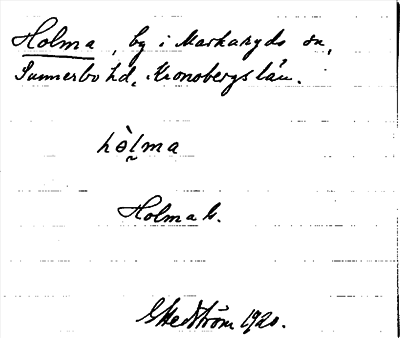 Holma, by i Markaryds sn,
Sunnerbo hd, Kronobergs län.
hòlma
Holma G.
GHedström 1920.